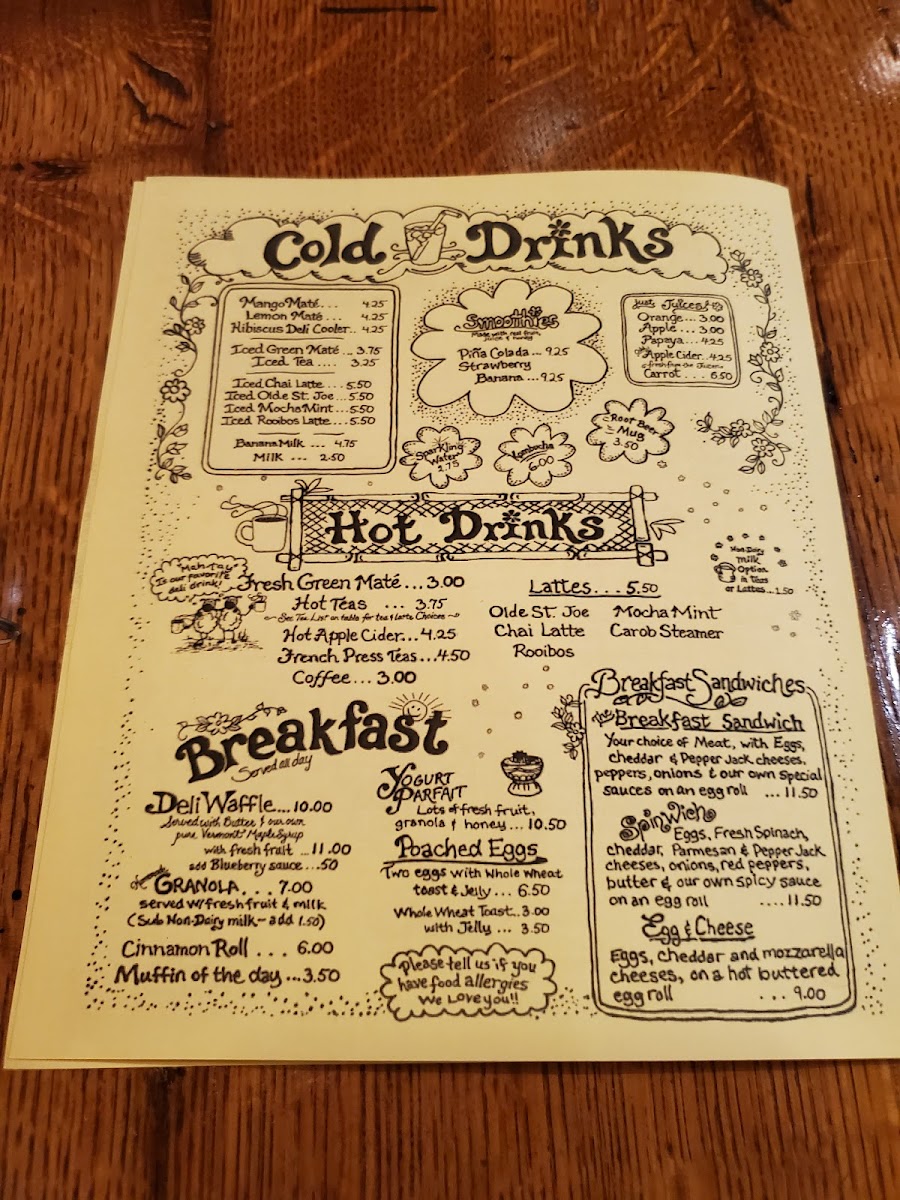 Cold Drinks
Mango Maté... 4.25
Lemon Maté... 4.25
Hibiscus Deli Cooler.. 4.25
Iced Green Maté... 3.75
Iced Tea.... 3.25
Iced Chai Latte....5.50
Iced Olde St. Joe...5.50
Iced Mocha Mint...5.50
Iced Rooibos Latte....5.50
Banana Milk .... 4.75
Milk ... 2.50
Smoothies
Made with real fruit,
juice & honey
Piña Colada... 9.25
Strawberry
Banana... 9.25
Just Juices!
Orange... 3.00
Apple... 3.00
Papaya... 4.25
Apple Cider..4.25
fresh from the Juicer
Carrot.... 6.50
Sparkling
Water
2.75
Kombucha
6.00
Root Beer
Mug
3.50
Hot Drinks
"Mah-Tay"
Is our favorite
deli drink!
Fresh Green Maté... 3.00
Hot Teas ... 3.75
See Tea List on table for tea & latte Choices
Hot Apple Cider... 4.25
French Press Teas...4.50
Coffee... 3.00
Lattes... 5.50
Olde St. Joe Mocha Mint
Chai Latte Carob Steamer
Rooibos
Non-Dairy
Milk
Option
in Teas
or Lattes...1.50
Breakfast
Served all day
Deli Waffle...10.00
Served with Butter & our own
pure Vermont Maple Syrup
with fresh fruit ...11.00
add Blueberry sauce....50
GRANOLA... 7.00
served w/fresh fruit & milk
(Sub Non-Dairy milk - add 1.50)
Cinnamon Roll .... 6.00
Muffin of the day...3.50
Yogurt
Parfait
Lots of fresh fruit,
granola & honey... 10.50
Poached Eggs
Two eggs with Whole Wheat
toast & Jelly... 6.50
Whole Wheat Toast..3.00
with Jelly... 3.50
Please tell us if you
have food allergies
We Love you!!
Breakfast Sandwiches
The Breakfast Sandwich
Your choice of Meat, with Eggs,
cheddar & Pepper Jack cheeses,
peppers, onions & our own special
sauces on an egg roll ...11.50
Spinwich
Eggs, Fresh Spinach,
cheddar, Parmesan & Pepper Jack
cheeses, onions, red peppers,
butter & our own spicy sauce
on an egg roll ....11.50
Egg & Cheese
Eggs, cheddar and mozzarella
cheeses, on a hot buttered
egg roll ... 9.00